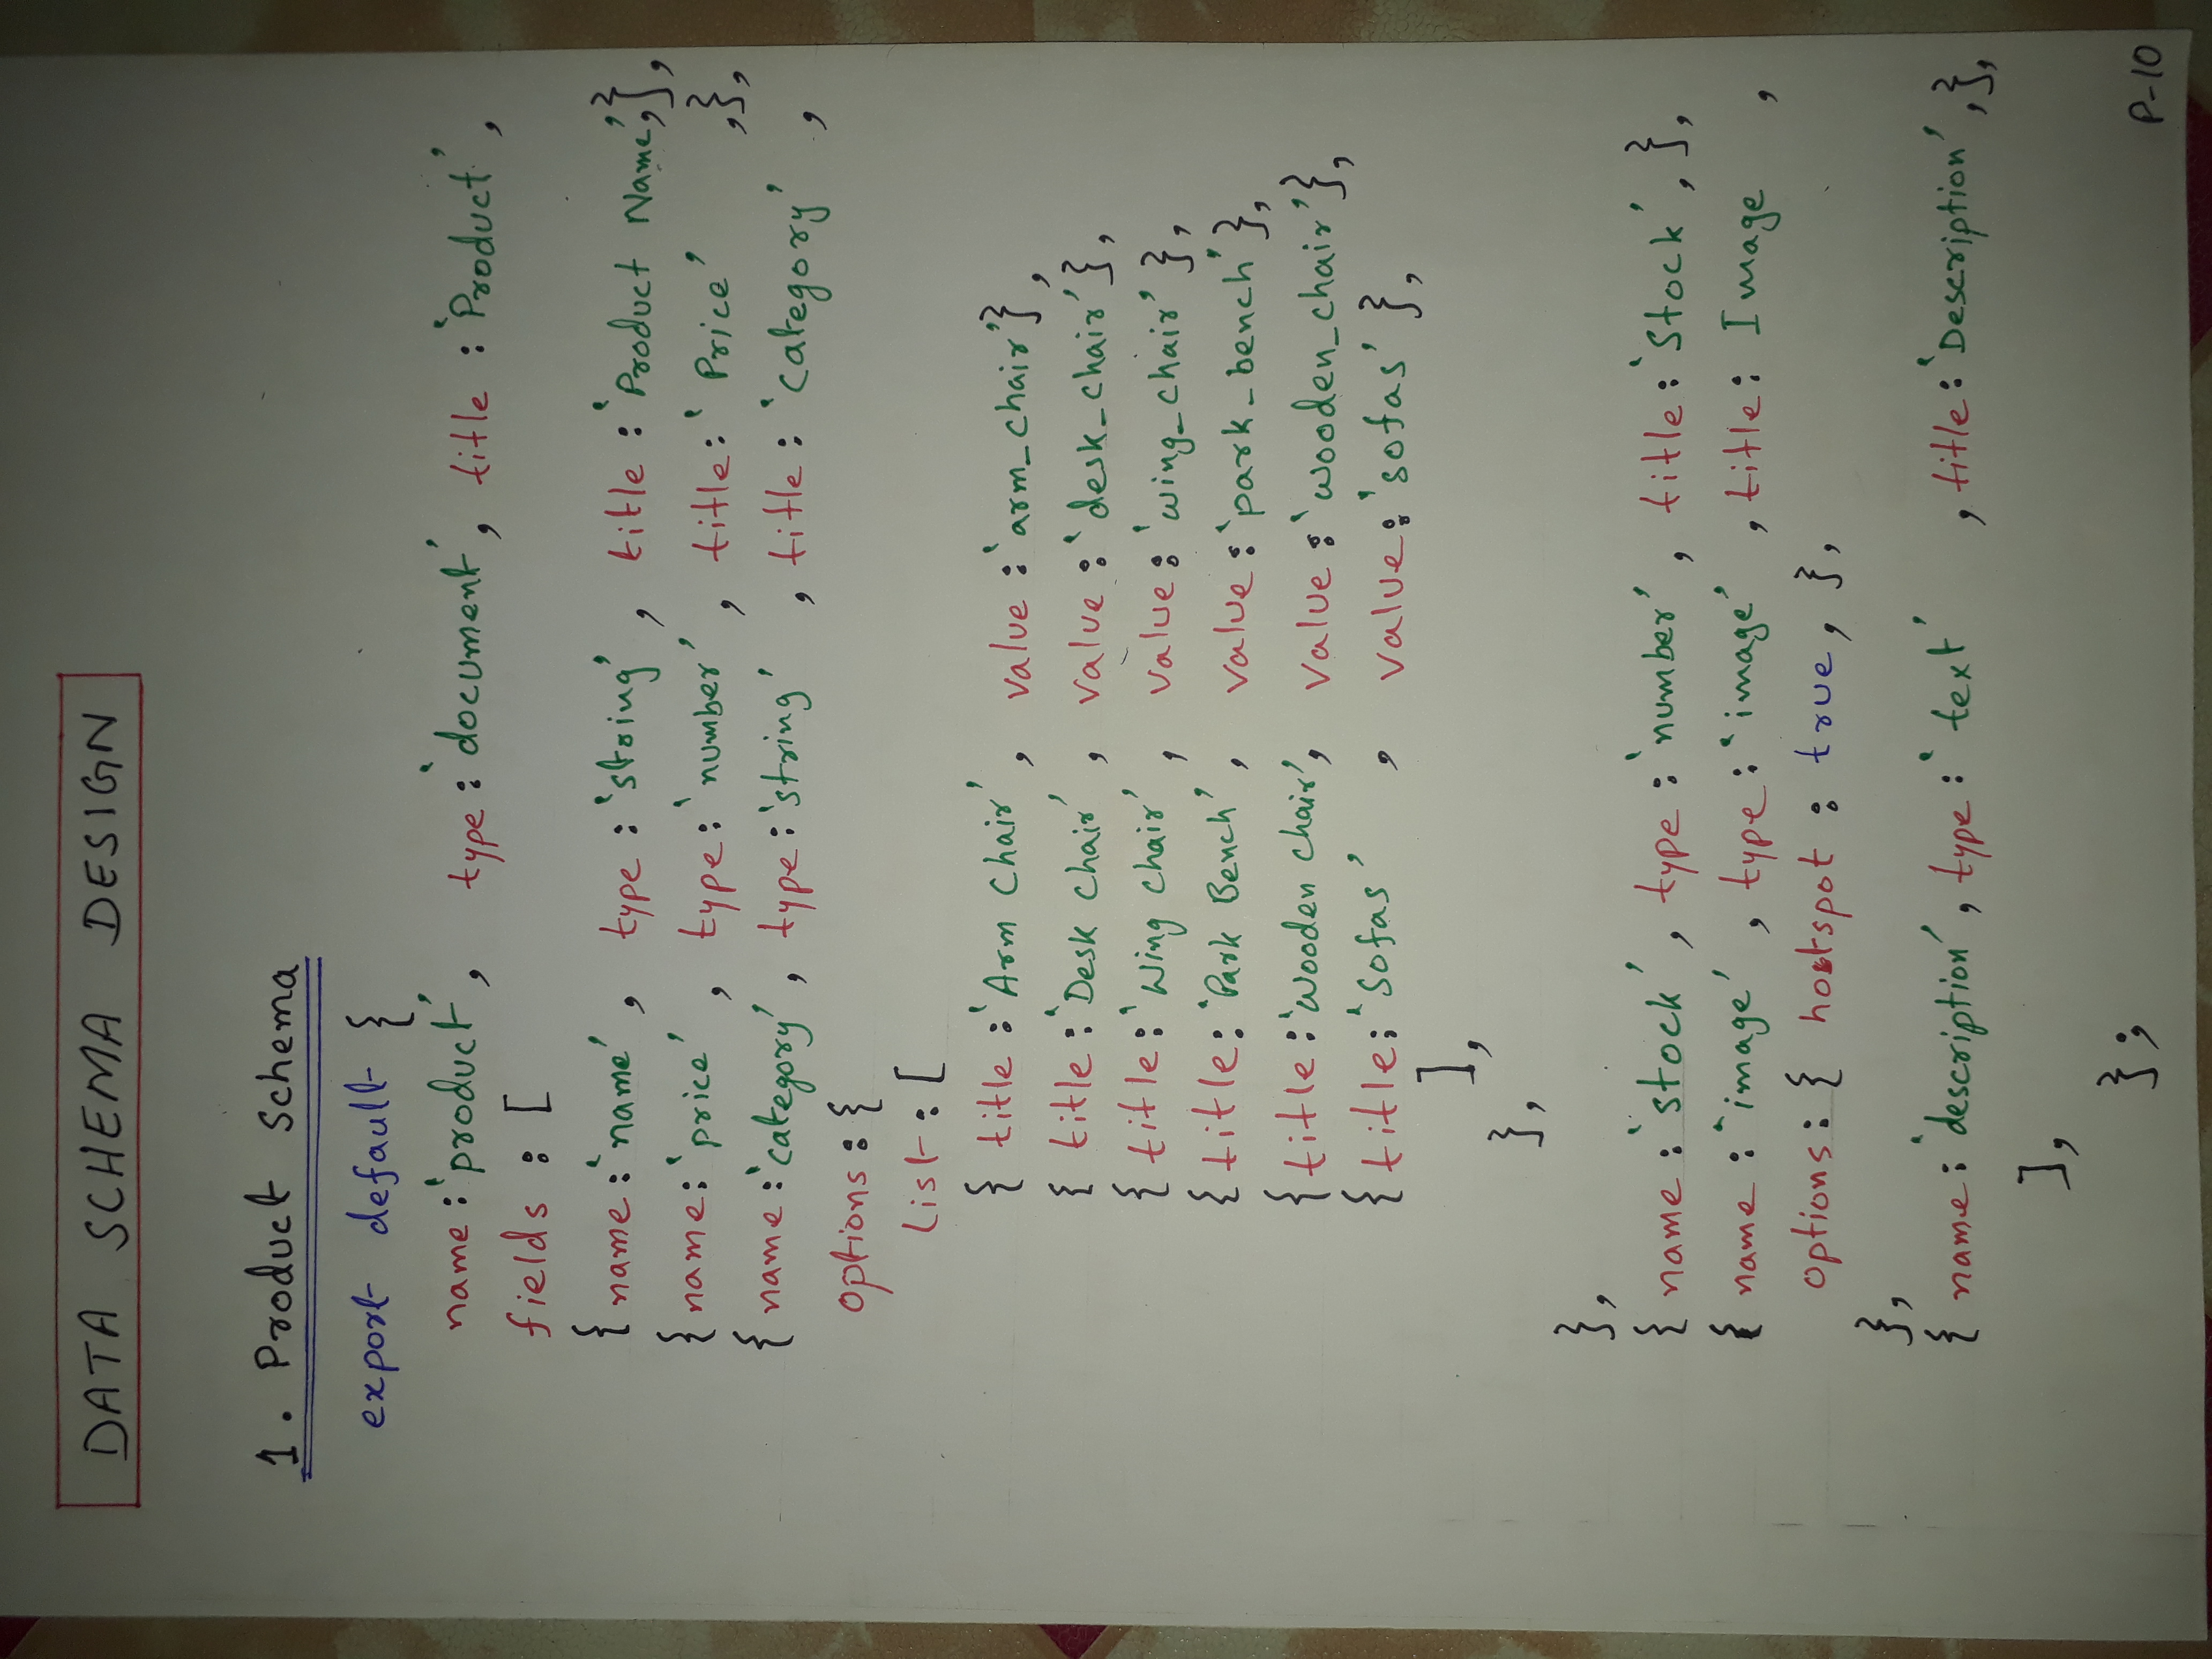 DATA SCHEMA DESIGN
1. Product Schema
export default {
name:'product', type:'document', title:'Product',
fields : [
{name:'name', type:'string', title:'Product Name',},
{name:'price', type:'number', title:'Price',},
{name:'category', type:'string', title:'category',
options:{
list:[
{ title:'Arm Chair', value:'arm_chair'},
{ title:'Desk chair', value:'desk_chair'},
{ title:'Wing chair', value:'wing_chair'},
{ title:'Park Bench', value:'park_bench'},
{ title:'Wooden chair', value:'wooden_chair'},
{ title;'Sofas', value:'sofas'},
],
},
},
{ name:'stock', type:'number', title:'Stock',},
{ name:'image', type:'image', title: Image,
options:{ hotspot : true, },
},
{ name:'description', type:'text', title:'Description',},
],
};
P-10